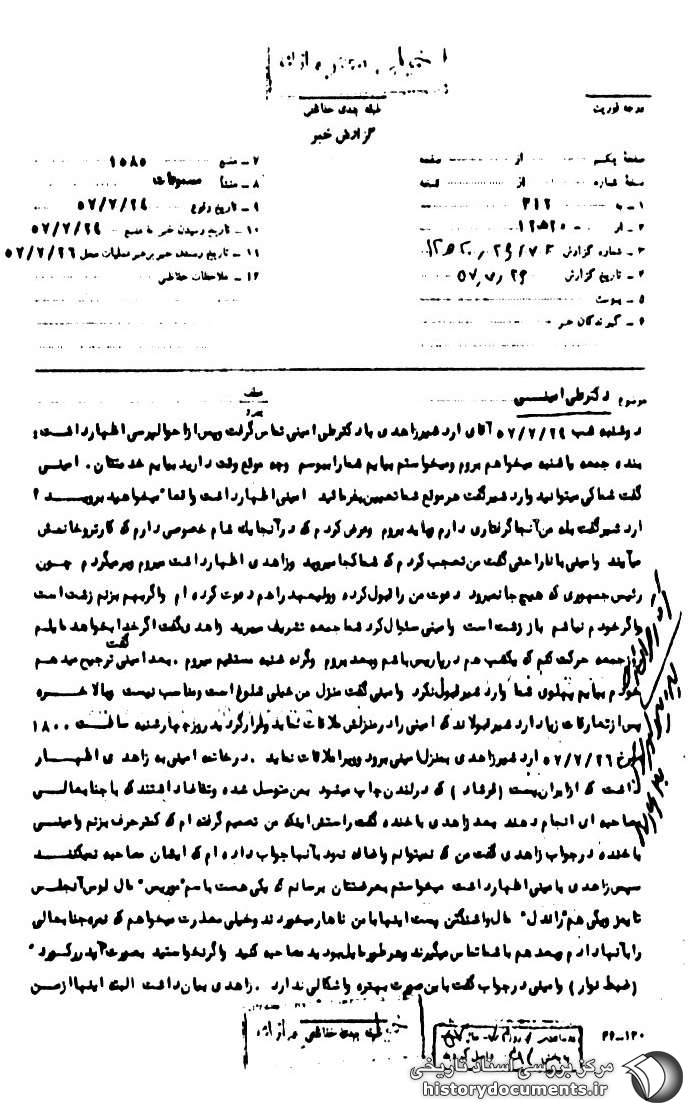 طبقه بندی حفاظتی
گزارش خبر
درجه فوریت
صفحهٔ یکم از صفحه
صفحهٔ شماره از نسخه
۱ ـ به ۳۱۲
۲ ـ از ۱۲ﻫ۲۰
۳ ـ شماره گزارش
۴ ـ تاریخ گزارش
۵ ـ پیوست
۶ ـ گیرندگان خبر
۷ ـ منبع ۱۵۸۵
۸ ـ منشأ مسموعات
۹ ـ تاریخ وقوع ۵۷/۷/۲۴
۱۰ ـ تاریخ رسیدن خبر به منبع ۵۷/۷/۲۴
۱۱ ـ تاریخ رسیدن خبر برهبر عملیات محل ۵۷/۷/۲۶
۱۲ ـ ملاحظات حفاظتی
موضوع دکتر علی امینی
دوشنبه شب ۵۷/۷/۲۴ آقای اردشیر زاهدی با دکتر علی امینی تماس گرفت و پس از احوالپرسی اظهار داشت:
بنده جمعه یا شنبه میخواهم بروم و میخواستم بیایم شما را ببوسم و چه موقع وقت دارید بیایم خدمتتان. امینی
گفت شما کی میتوانید و اردشیر گفت هر موقع شما تعیین بفرمائید امینی اظهار داشت واقعا" میخواهید بروید؟
اردشیر گفت بله من آنجا گرفتاری دارم و باید بروم و عرض کردم که در آنجا یک شام خصوصی دارم که کارتر و خانمش
میآیند و امینی با ناراحتی گفت من تعجب کردم که شما کجا میروید و زاهدی اظهار داشت میروم و برمیگردم چون
رئیس جمهوری که هیچ جا نمیرود دعوت من را قبول کرده و ولیعهد را هم دعوت کرده ام و اگر بهم بزنم زشت است
و اگر خودم نباشم باز زشت است و امینی سئوال کرد شما جمعه تشریف میبرید زاهدی گفت اگر خدا بخواهد مایلم
روز جمعه حرکت کنم که یکشب هم در پاریس باشم و بعد بروم و گرنه شنبه مستقیم میروم. بعد امینی گفت ترجیح میدهم
خودم بیایم پهلوی شما و اردشیر قبول نکرد و امینی گفت منزل من خیلی شلوغ است و مناسب نیست و بالاخره
پس از تعارفات زیاد اردشیر قبولاند که امینی را در منزلش ملاقات نماید و قرار گردید روز چهارشنبه ساعت ۱۸۰۰
مورخ ۵۷/۷/۲۶ اردشیر زاهدی بمنزل امینی برود و ویرا ملاقات نماید. در خاتمه امینی به زاهدی اظهار
داشت که از ایران پست (فرشاد) که در لندن چاپ میشود بمن متوسل شده و تقاضا داشتند که با جنابعالی
مصاحبه ای انجام دهند بعد زاهدی با خنده گفت راستش اینکه من تصمیم گرفته ام که کمتر حرف بزنم و امینی
با خنده در جواب زاهدی گفت من که نمیتوانم و اضافه نمود بآنها جواب داده ام که ایشان مصاحبه نمیکنند
سپس زاهدی با امینی اظهار داشت میخواستم بعرضتان برسانم که یکی هست باسم "موریس" مال لوس آنجلس
تایمز و یکی هم "راندل" مال واشنگتن پست اینها با من ناهار میخوردند و خیلی معذرت میخواهم که نمره جنابعالی
را بآنها دادم و بعد هم با شما تماس میگیرند و هر طور مایل بودید مصاحبه کنید و اگر نخواستید بصورت آید ررکورد"
(ضبط نوار) و امینی در جواب گفت با این صورت بهتره و اشکالی ندارد. زاهدی بیان داشت البته اینها از من
طبقه بندی حفاظتی
۲۴ـ۱۳۰
مرکز بررسی اسناد تاریخی
historydocuments.ir